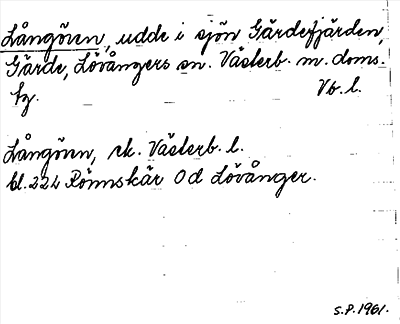 Långören, udde i sjön Gärdefjärden,
Gärde, Lövångers sn. Västerb. m. doms.
tg. Vb. l.
Långören, rk. Västerb. l.
bl. 224 Rönnskär Od Lövånger.
S.P. 1961.